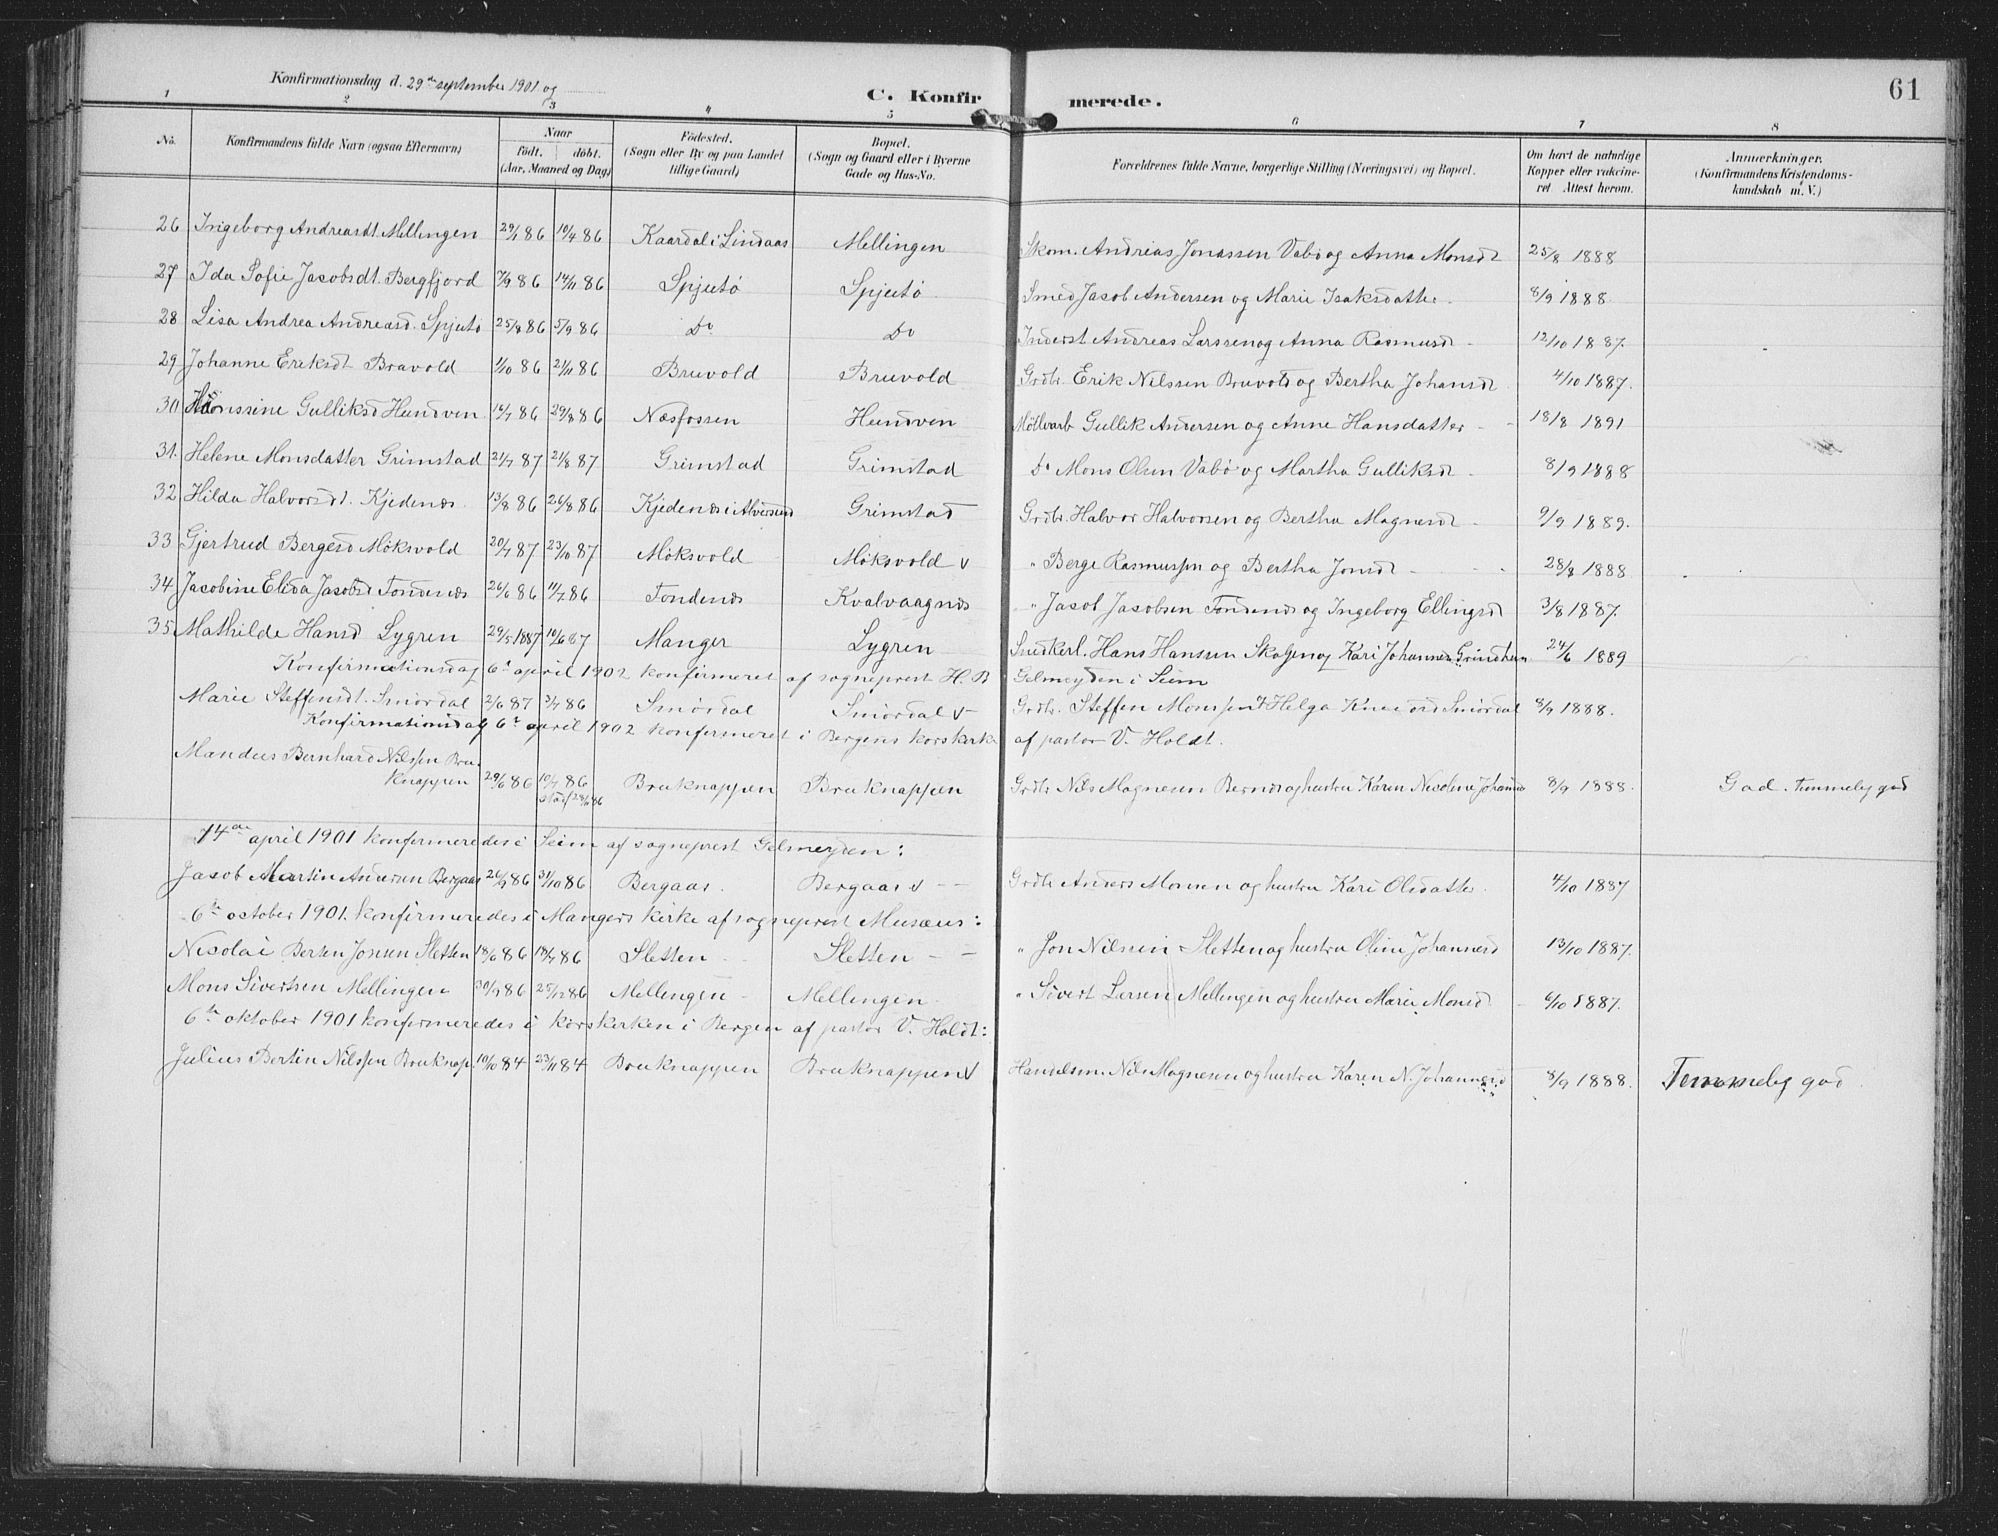 Konfirmationsdag d. 29de september 1901 og
C. Konfirmerede.
61
1 2 3 4 5 6 7 8
No. Konfirmandens fulde Navn (ogsaa Efternavn) Naar født. døbt. (Aar, Maaned og Dag) Fødested. (Sogn eller By og paa Landet tillige Gaard) Bopæl. (Sogn og Gaard eller i Byerne Gade og Hus-No. Forældrenes fulde Navne, borgerlige Stilling (Næringsvei) og Bopæl. Om havt de naturlige Kopper eller vakcineret Attest herom. Anmærkninger. (Konfirmandens Kristendomskundskab m. V.)
26 Ingeborg Andreasdt. Mellingen 29/1 86 10/4 86 Kaardal i Lindaas Mellingen Skom. Andreas Jonassen Vabø og Anna Monsdt 25/8 1888
27 Ida Sofie Jacobsdt. Bergfjord 7/9 86 14/11 86 Spjutø Spjutø Smed Jacob Andersen og Marie Isaksdatter 8/9 1888.
28 Lisa Andrea Andreasd. Spjutø 25/8 86 5/9 86 Do Do Inderst Andreas Larssen og Anna Rasmusd 12/10 1887.
29 Johanne Eriksdt Bruvold 1/10 86 21/11 86 Bruvold Bruvold Grdbr. Erik Nilssen Bruvold og Bertha Johansdt 4/10 1887.
30 Hanssine Gulliksd Hundven 14/7 86 29/8 86 Næsfossen Hundven Møllearb Gullik Andersen og Anne Hansdatter 18/8 1891
31. Helene Monsdatter Grimstad 21/7 87 21/8 87 Grimstad Grimstad Do Mons Olsen Vabø og Martha Gulliksdt 8/9 1888
32 Hilda Halvorsdt. Kjedenæs 13/8 86 26/8 86 Kjedenæs i Alversund Grimstad Grdbr. Halvor Halvorsen og Bertha Magnesdt 9/9 1889.
33 Gjertrud Bergesd Møksvold 20/7 87 23/10 87 Møksvold Møksvold v " Berge Rasmussen og Bertha Jonsdt 28/8 1888
34 Jacobine Elida Jacobsd Fondenæs 26/6 86 11/7 86 Fondenæs Kvalvaagnæs " Jacob Jacobsen Fondenæs og Ingeborg Ellingsd 3/8 1887.
35 Mathilde Hansd Lygren 29/5 1887 10/6 87 Manger Lygren Snedkerl. Hans Hanssen Skagen og Kari Johannesd. Grindheim 24/6 1889
Konfirmationsdag 6te april 1902 konfirmeret af sogneprest H. B Gelmeyden i Seim
Marie Steffensdt. Smørdal 2/6 87 3/7 86 Smørdal Smørdal v Grdbr. Steffen Monssen & Helga Smørdal 8/9 1888.
Konfirmationsdag 6te april 1902 konfirmeret i Bergens korskirke af pastor V. Holdt.
Mandus Bernhard Nilssen Bru-
knappen 29/6 86 10/7 86 Bruknappen Bruknappen Grdbr Nils Magnesen Bernes og hustru Karen Nicoline Johannesd 8/9 1888. God. Temmelig god
14de april 1901 konfirmeredes i Seim af sogneprest Gelmeyden:
Jacob Martin Andersen Bergaas 26/9 86 31/10 86 Bergaas. Bergaas v Grdbr Anders Monsen og hustru Kari Olsdatter. 4/10 1887
6te october 1901 konfirmeredes i Mangers kirke af sogneprest Musæus:
Nicolai Bertin Jonsen Sletten 13/6 86 18/7 86 Sletten Sletten " Jon Nilssen Sletten og hustru Oline Johannesd 13/10 1887.
Mons Sivertsen Mellingen 30/9 86 25/12 86 Mellingen Mellingen " Sivert Larsen Mellingen og hustru Marie Monsd 6/10 1887.
6te oktober 1901 konfirmeredes i korskirken i Bergen af pastor V. Holdt:
Julius Bertin Nilssen Bruknap. 10/10 84 23/11 84 Bruknappen Bruknappen v Handelsm. Nils Magnesen og hustru Karen N. Johannesd 8/9 1888. Temmelig god